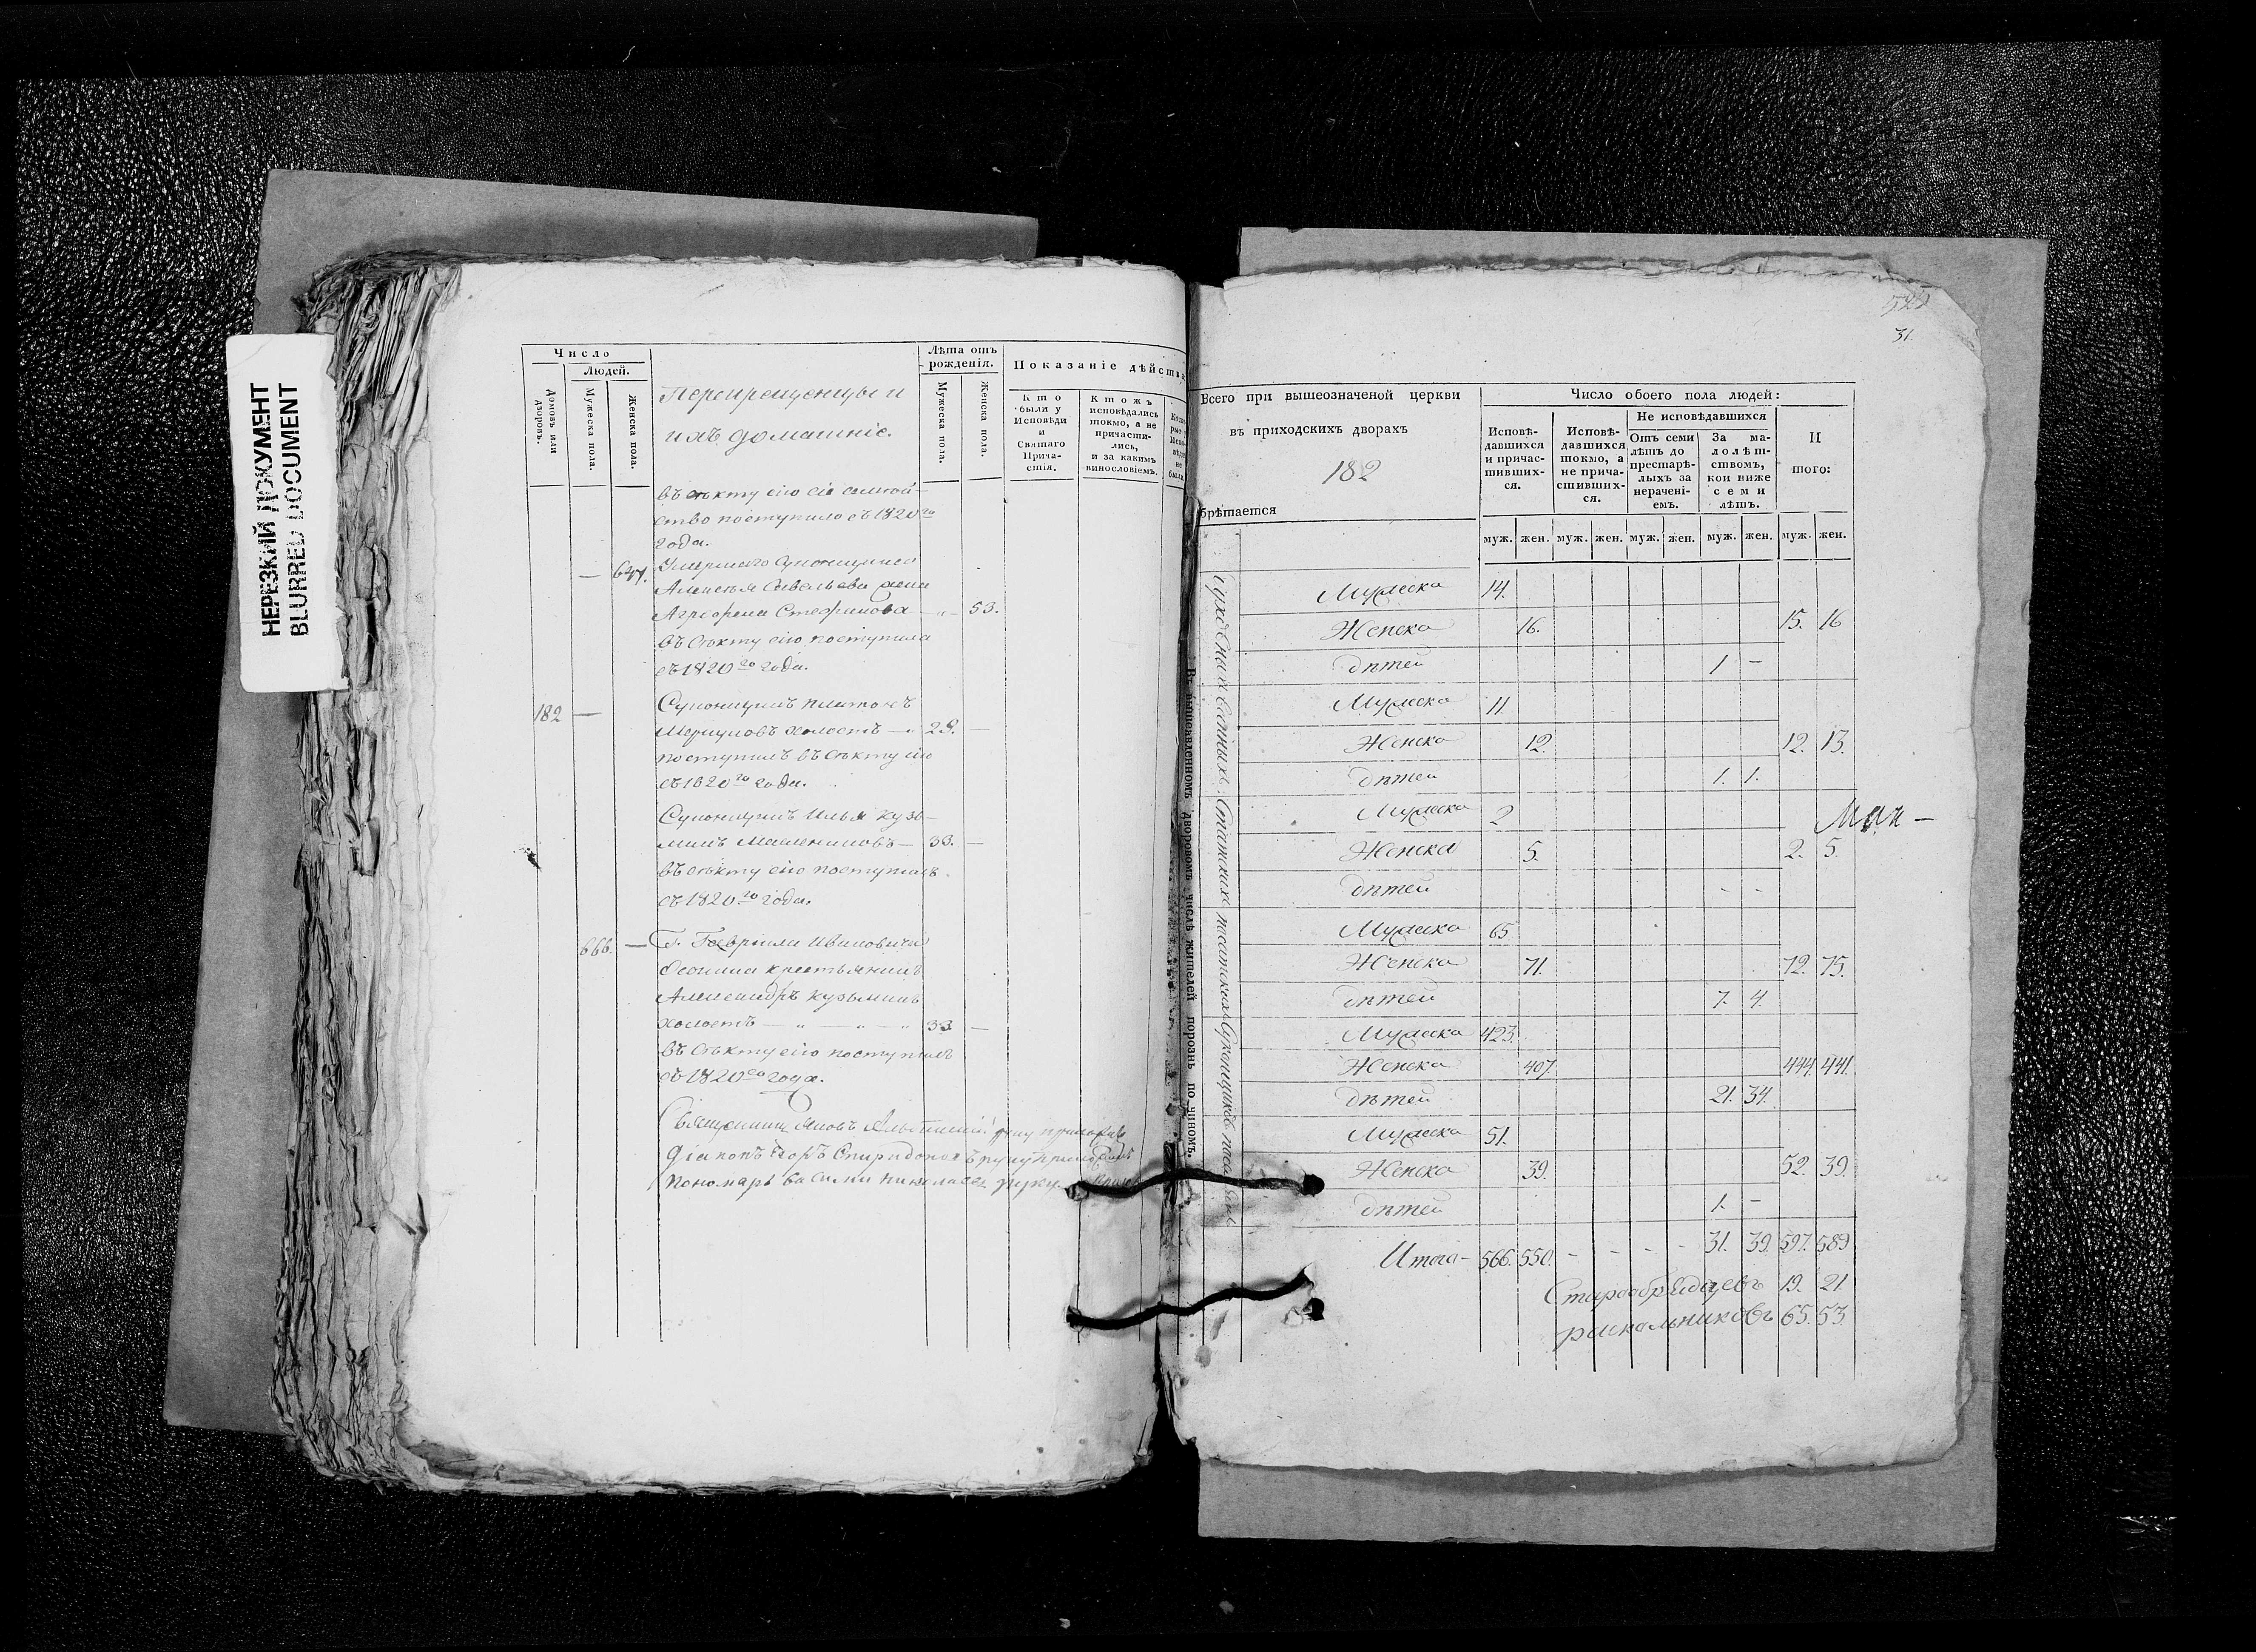 НЕРЕЗКИЙ ДОКУМЕНТ
BLURRED DOCUMENT
Число
Людей.
Домовъ или дворовъ.
Мужеска пола.
Женска пола.
Перекрещенцы и
ихъ домашніе.
Лѣта отъ рожденія.
Мужеска пола.
Женска пола.
Показаніе дѣйства
Кто были у Исповѣди и Святаго Причастія.
Ктожъ исповѣдались токмо, а не причастились, и за какимъ винословіемъ.
въ секту сію сіе семей-
ство поступило съ 1820го
года.
Умершаго
Алексѣя Савельева жена
— Стефанова — „ — 53.
въ секту сію поступила
съ 1820го года.
182 — Платонъ
холостъ — 28. —
поступилъ въ секту сію
съ 1820го года.
Илья Кузь-
минъ — 33. —
въ секту сію поступилъ
съ 1820го года.
666. — Г. Гавріила Ивановича
крестьянинъ
Александръ Кузьминъ
холостъ — „ — „ — „ 33 —
въ секту сію поступилъ
съ 1820го года.
Священникъ руку приложилъ
Діаконъ Спиридоновъ руку приложилъ
Пономарь Василій Николаевъ руку
522
31.
Всего при вышеозначеной церкви
въ приходскихъ дворахъ
182
брѣтается
Число обоего пола людей:
Исповѣдавшихся и причастившихся.
Исповѣдавшихся токмо, а не причастившихся.
Не исповѣдавшихся
Отъ семи лѣтъ до престарѣлыхъ за нерачені-емъ.
За малолѣтствомъ, кои ниже семи лѣтъ.
И того:
муж. жен. муж. жен. муж. жен. муж. жен. муж. жен.
Въ вышеявленномъ дворовомъ числѣ жителей порознь по чиномъ.
Мужеска 14.
Женска 16. 15. 16
дѣтей 1 —
Мужеска 11.
Женска 12. 12. 13.
дѣтей 1. 1.
Мужеска 2
Женска 5. 2. 5.
дѣтей - -
Мужеска 65
Женска 71. 72. 75.
дѣтей 7. 4.
Мужеска 423.
Женска 407. 444. 441.
дѣтей 21. 34.
Мужеска 51.
Женска 39. 52. 39.
дѣтей 1. —
Итого — 566. 550. - - - - 31. 39. 597. 589
Старообрядцевъ 19. 21
раскольниковъ 65. 53